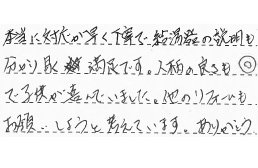 本当に対応が早く丁寧で給湯器の説明も
分かり易く満足です。人柄の良さも◎
で子供が喜んでいました。他のリフォームも
お願いしようと考えています。ありがとう